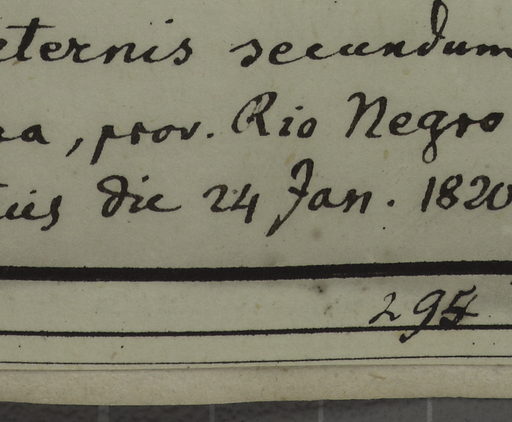 eternis secundum
na, prov. Rio Negro
tiis die 24 Jan. 1820
295